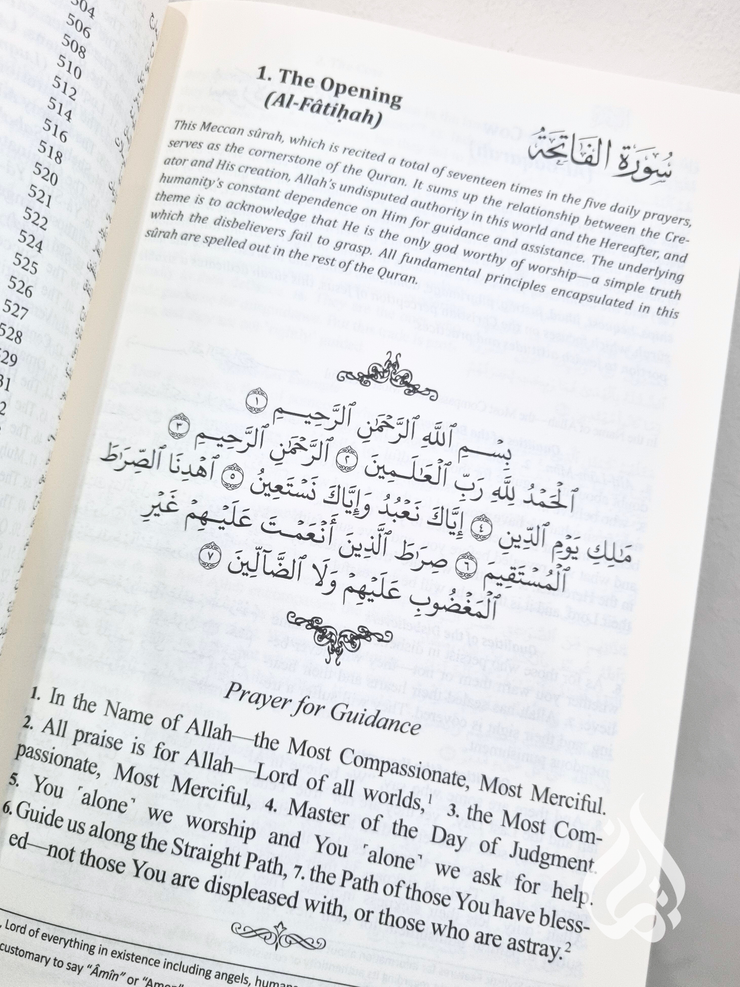 504
506
508
510
512
514
516
518
520
521
522
524
525
526
527
528
1. The Opening
(Al-Fâtiḥah)
سُورَةُ الفَاتِحَةُ
This Meccan sûrah, which is recited a total of seventeen times in the five daily prayers,
serves as the cornerstone of the Quran. It sums up the relationship between the Cre-
ator and His creation, Allah's undisputed authority in this world and the Hereafter, and
humanity's constant dependence on Him for guidance and assistance. The underlying
theme is to acknowledge that He is the only god worthy of worship—a simple truth
which the disbelievers fail to grasp. All fundamental principles encapsulated in this
sûrah are spelled out in the rest of the Quran.
بِسۡمِ ٱللَّهِ ٱلرَّحۡمَٰنِ ٱلرَّحِيمِ ١
ٱلۡحَمۡدُ لِلَّهِ رَبِّ ٱلۡعَٰلَمِينَ ٢ ٱلرَّحۡمَٰنِ ٱلرَّحِيمِ ٣
مَٰلِكِ يَوۡمِ ٱلدِّينِ ٤ إِيَّاكَ نَعۡبُدُ وَإِيَّاكَ نَسۡتَعِينُ ٥ ٱهۡدِنَا ٱلصِّرَٰطَ
ٱلۡمُسۡتَقِيمَ ٦ صِرَٰطَ ٱلَّذِينَ أَنۡعَمۡتَ عَلَيۡهِمۡ غَيۡرِ
ٱلۡمَغۡضُوبِ عَلَيۡهِمۡ وَلَا ٱلضَّآلِّينَ ٧
Prayer for Guidance
1. In the Name of Allah—the Most Compassionate, Most Merciful.
2. All praise is for Allah—Lord of all worlds,¹ 3. the Most Com-
passionate, Most Merciful, 4. Master of the Day of Judgment.
5. You ˹alone˺ we worship and You ˹alone˺ we ask for help.
6. Guide us along the Straight Path, 7. the Path of those You have bless-
ed—not those You are displeased with, or those who are astray.²
Lord of everything in existence including angels,
customary to say "Âmîn" or